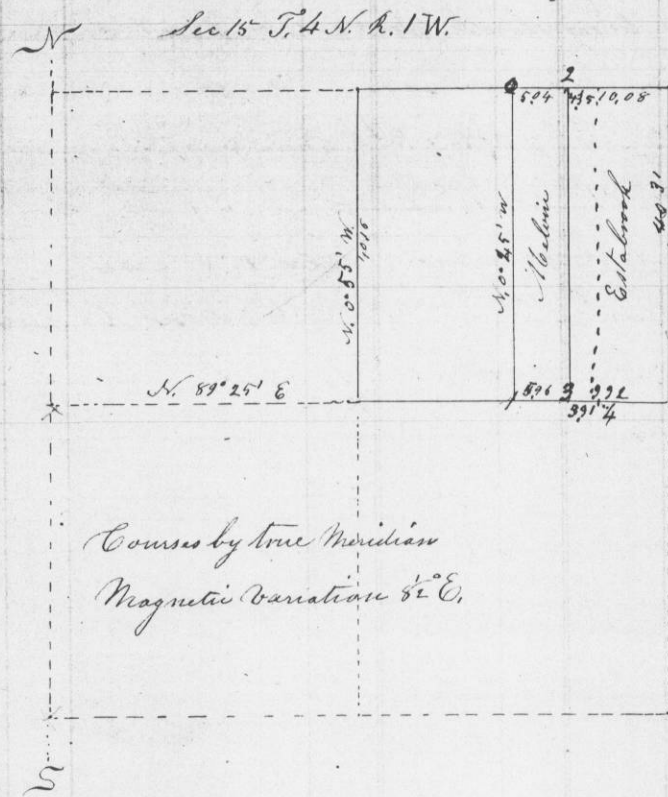 Sec 15 T. 4 N. R. 1 W.
N
2
5,04
10,08
N. 0° 55' W.
N. 0° 25' W
Melvin
Estabrook
N. 89° 25' E
3
992
4
Courses by true Meridian
Magnetic Variation 8½° E,
S